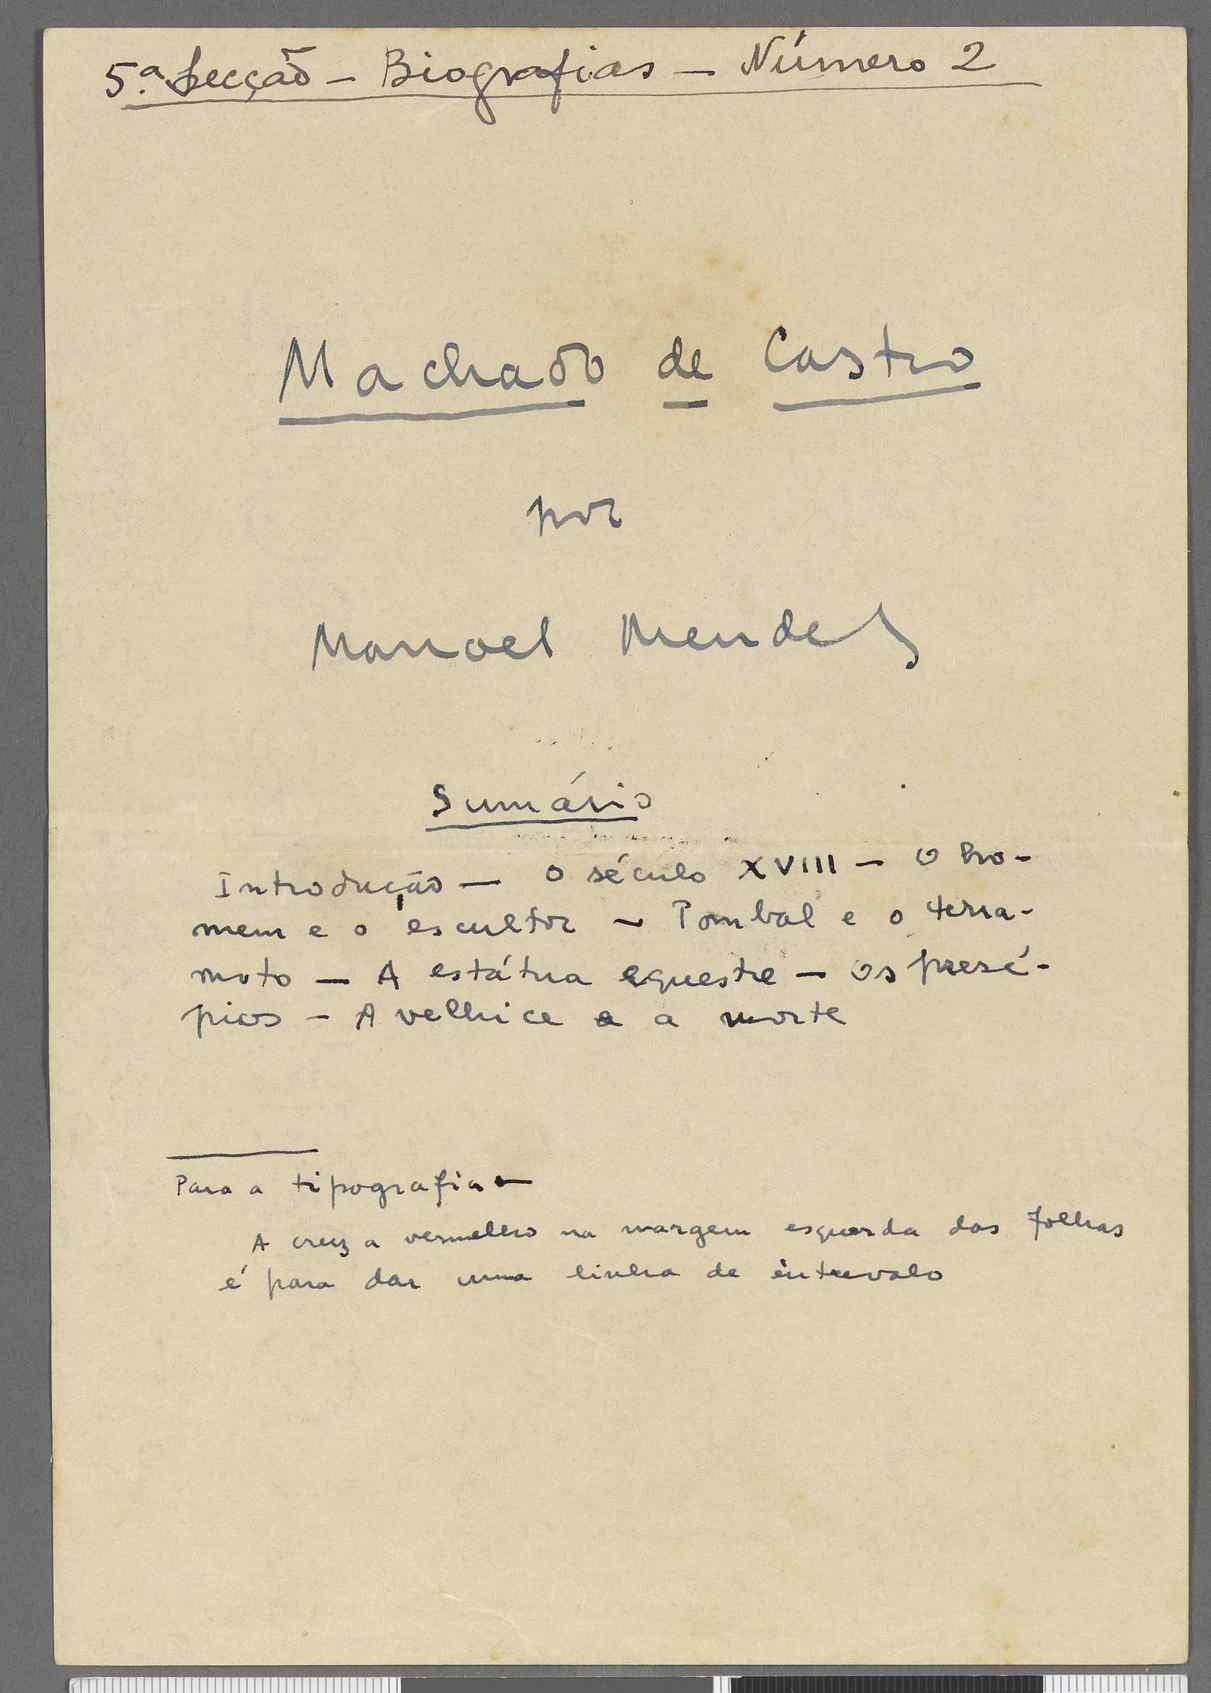 5.ª Secção – Biografias – Número 2
Machado de Castro
por
Manoel Mendes
Sumário
Introdução – O século XVIII – O ho-
mem e o escultor – Pombal e o terra-
moto – A estátua equestre – Os presé-
pios – A velhice e a morte
Para a tipografia –
A cruz a vermelho na margem esquerda das folhas
é para dar uma linha de intervalo